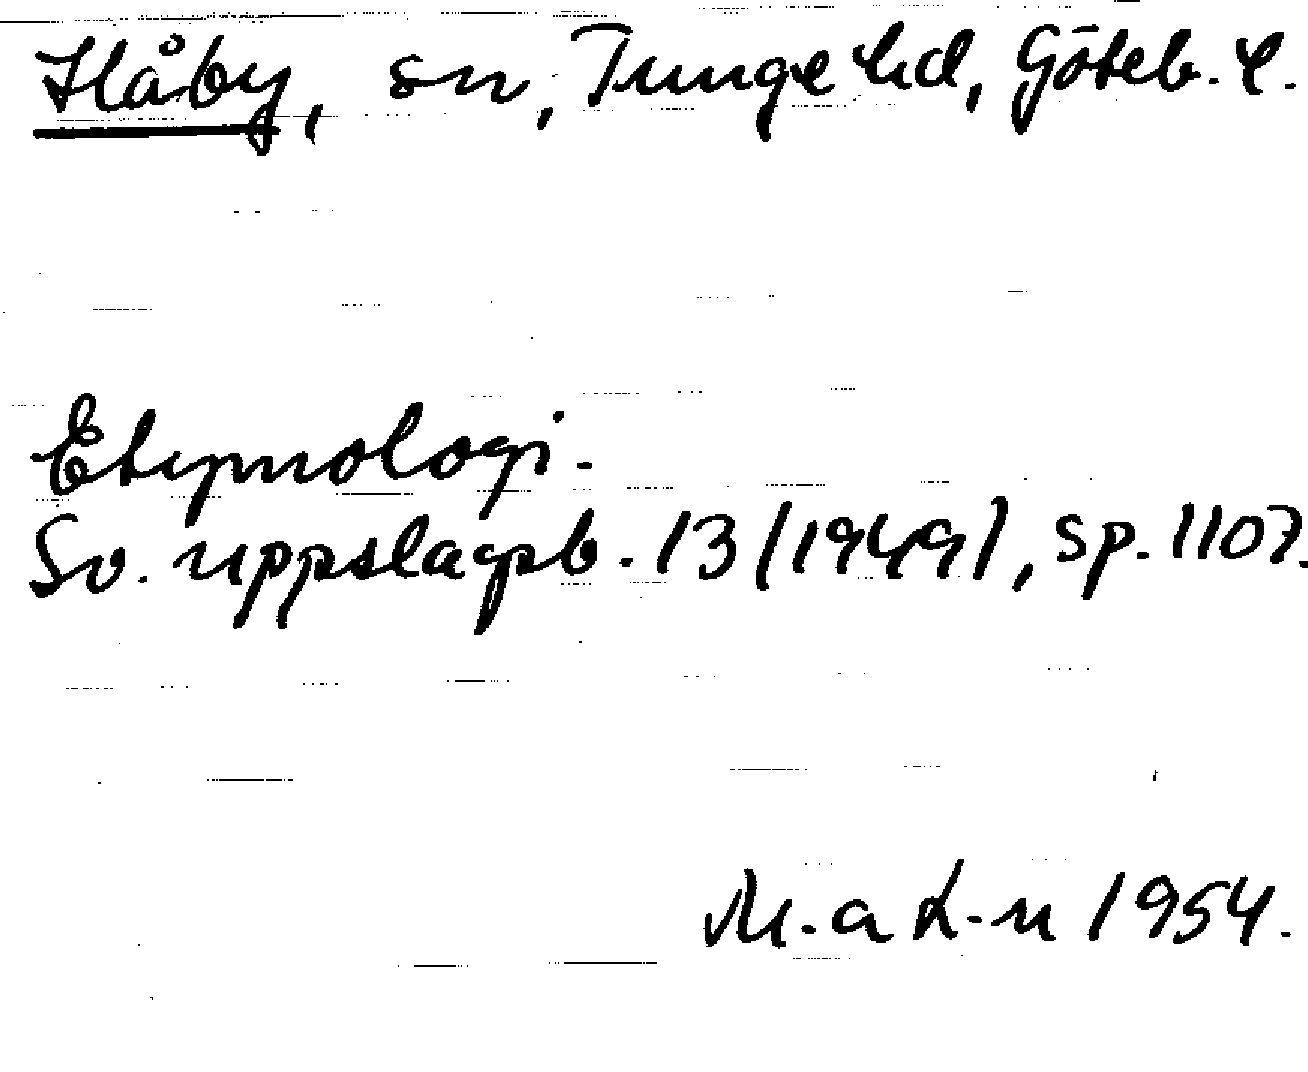 Håby, sn, Tunge hd, Göteb. l.
Etymologi.
Sv. uppslagsb. 13 (1949), sp. 1107.
1954.